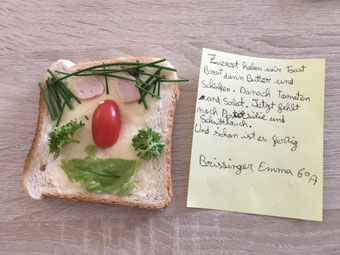 Zuerst haben wir Toast
Brot dann Butter und
Schinken. Danach Tomaten
und Salat. Jetzt fehlt
noch Petersilie und
Schnittlauch.
Und schon ist es fertig
Brissinger Emma 6A